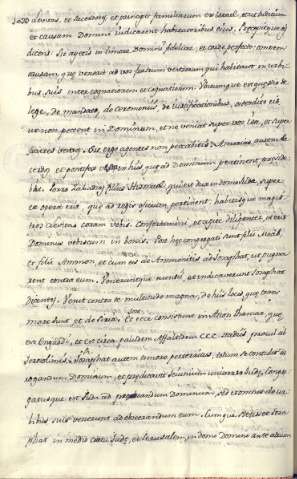 Levitas, et sacerdotes, et principes familiarum ex Israel, ut iudicium
et causam Domini iudicarent habitatoribus eius. Præcepitque eis
dicens: Sic agetis in timore Domini fideliter, et corde perfecto. Omnem
causam, quæ venerit ad vos fratrum vestrorum qui habitant in urbi-
bus suis inter cognationem et cognationem. Ubicumque quæstio est de
lege, de mandato, de ceremoniis, de iustificationibus, ostendite eis
ut non peccent in Dominum, et ne veniat super vos ira, et super
fratres vestros. Sic ergo agentes non peccabitis. Amarias autem sa-
cerdos et pontifex vester in his, quæ ad Deum pertinent præside-
bit. Porro Zabadias filius Ismael, qui est dux in domo Iuda, super
ea opera erit, quæ ad regis officium pertinent, habetisque magis-
tros Levitas coram vobis. Confortamini, et agite diligenter, et erit
Dominus vobiscum in bonis. Post hæc congregati sunt filii Moab,
et filii Ammon, et cum eis de Ammonitis ad Iosaphat, ut pugna-
rent contra eum. Veneruntque nuntii, et indicaverunt Iosaphat
dicentes: Venit contra te multitudo magna, de his locis, quæ trans
mare sunt, et de Siria. Et ecce consistunt in quæ
est Engaddi, et CCC stadiis procul ab
Ierosolimis. Iosaphat autem timore perterritus, totum se contulit ad
rogandum Dominum, et prædicavit ieiunium universo Iuda. Congre-
gatusque est Iudas ad precandum Dominum, sed et omnes de ur-
bibus suis venerunt ad obsecrandum eum. Cumque stetisset Iosa-
phat in medio cœtu Iudæ, et Ierusalem, in domo Domini ante atrium